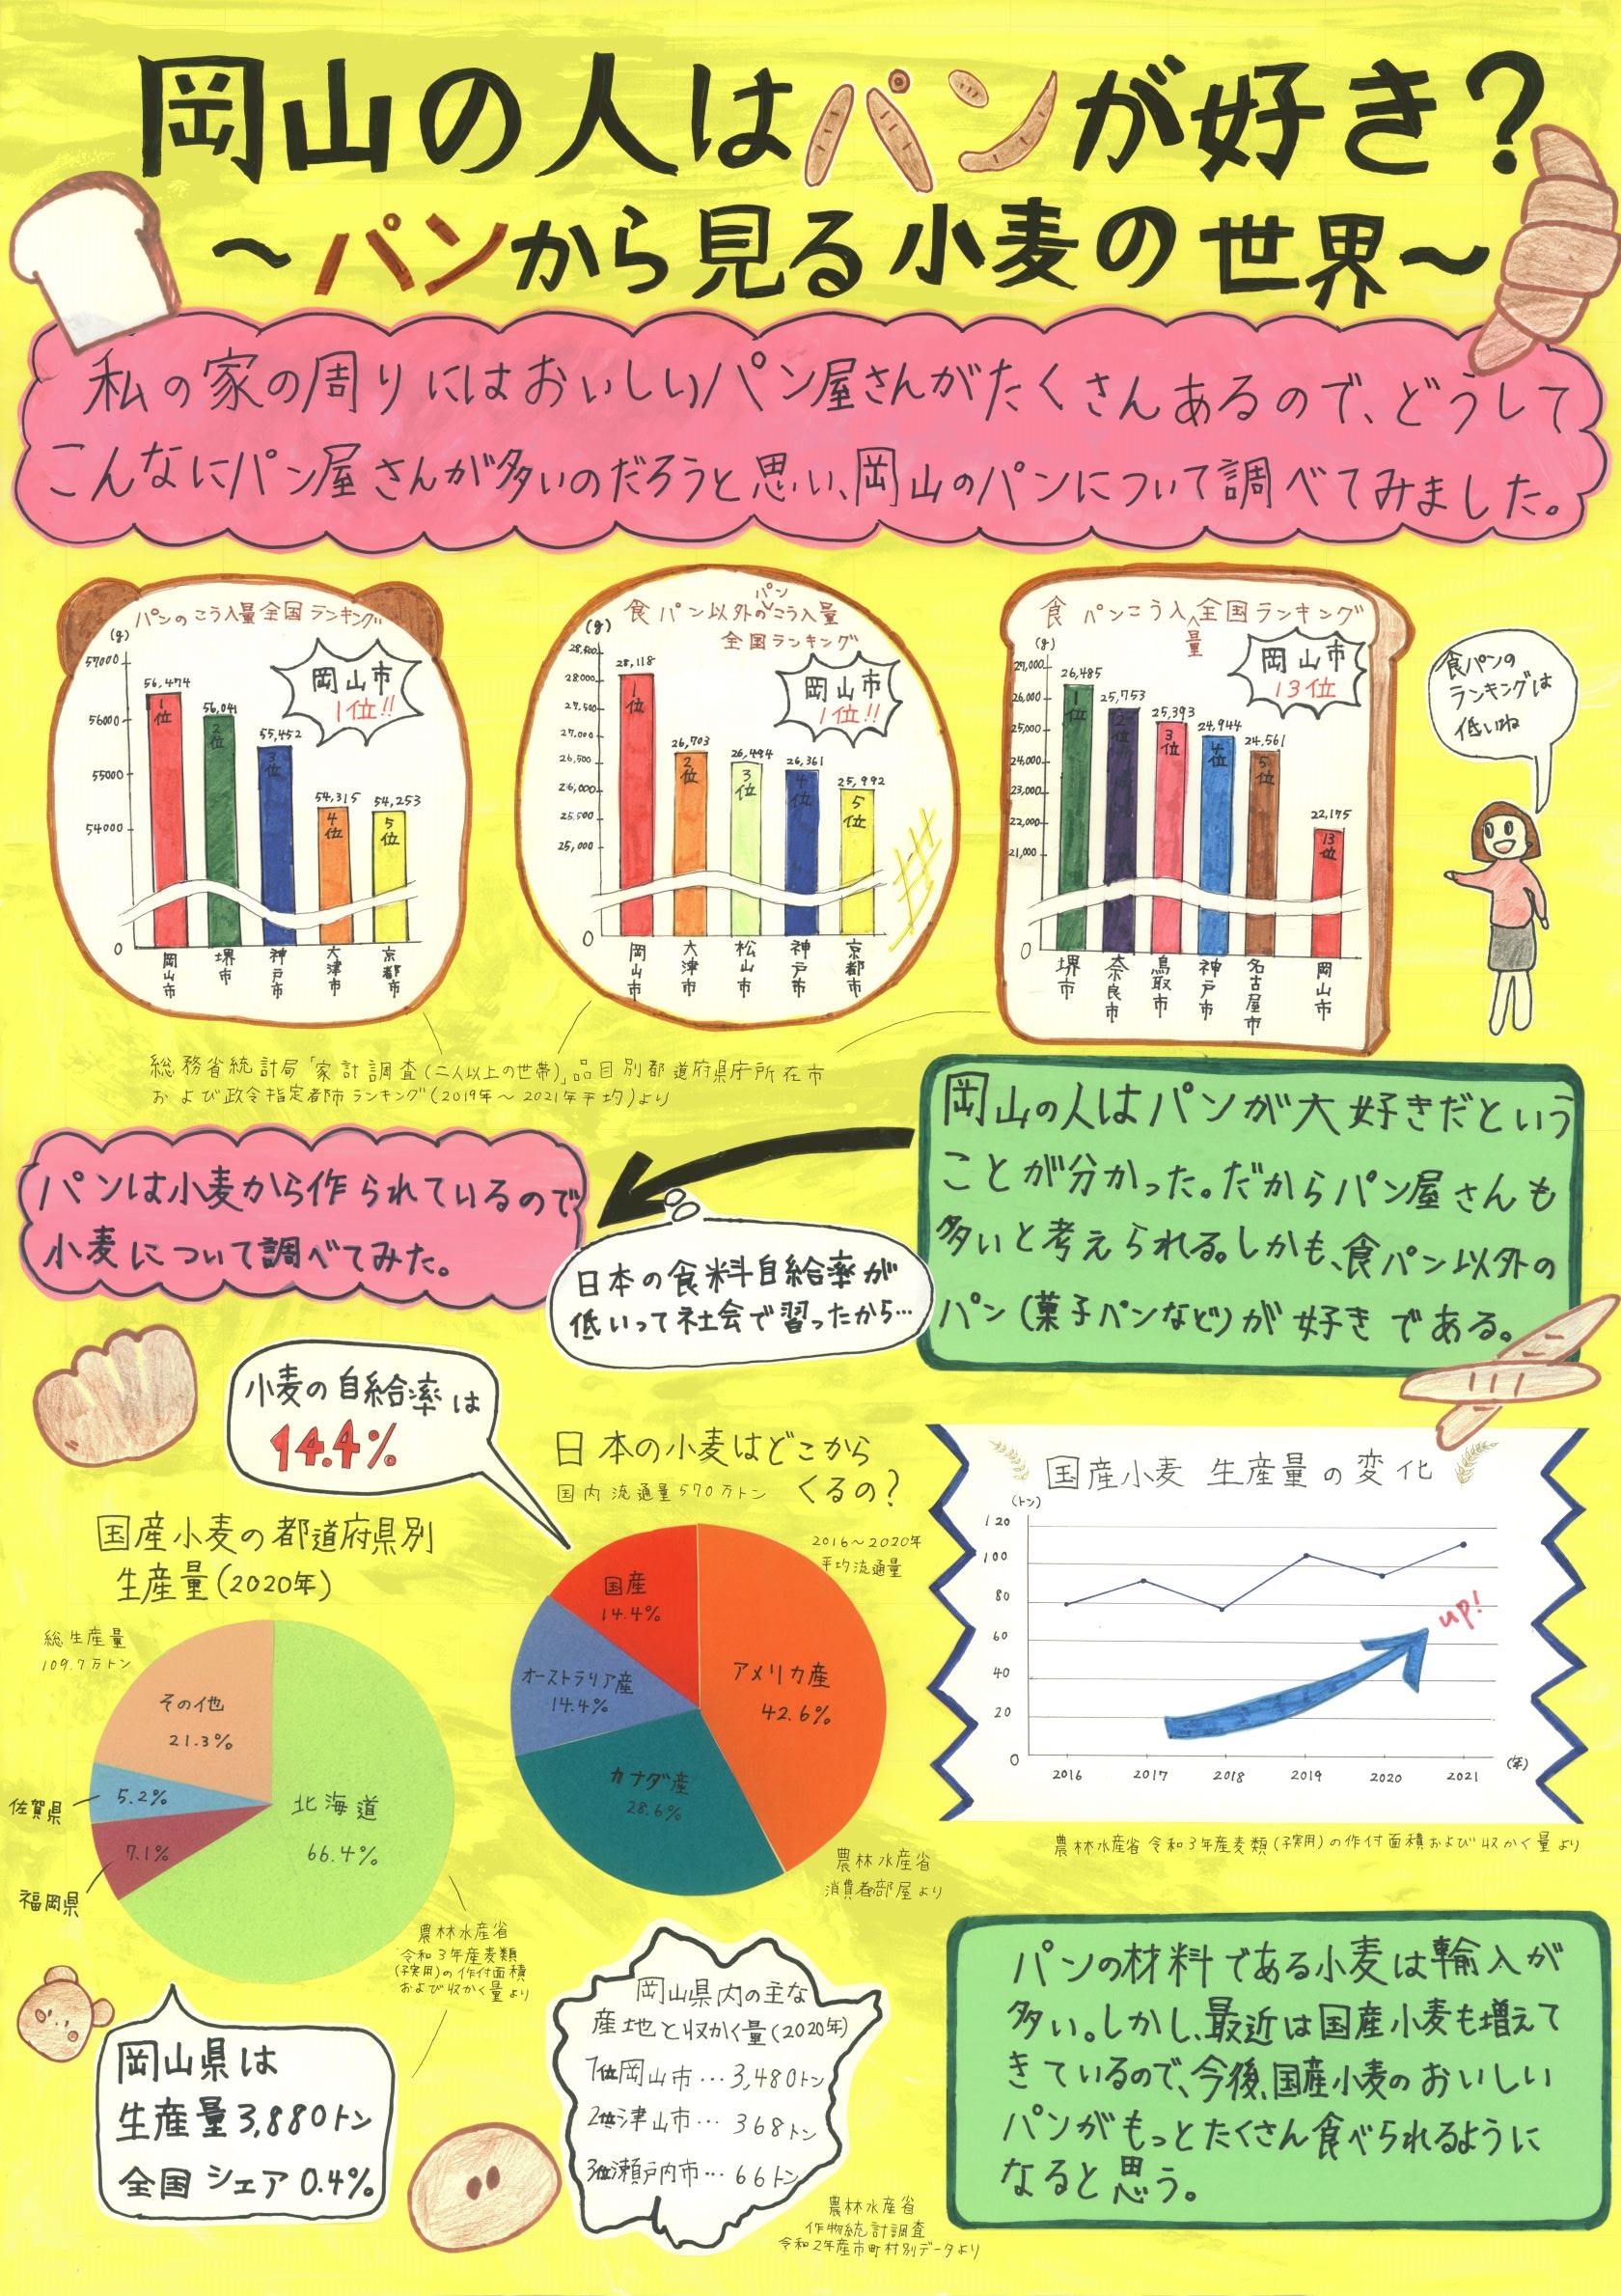 岡山の人はパンが好き?
〜パンから見る小麦の世界〜
私の家の周りにはおいしいパン屋さんがたくさんあるので、どうして
こんなにパン屋さんが多いのだろうと思い、岡山のパンについて調べてみました。
パンのこう入量全国ランキング
(g)
57000
56000
55000
54000
0
岡山市
1位!!
56,474
1位
56,041
2位
55,452
3位
54,315
4位
54,253
5位
岡山市
堺市
神戸市
大津市
京都市
食パン以外のパンこう入量
全国ランキング
(g)
28,500
28,000
27,500
27,000
26,500
26,000
25,500
25,000
0
岡山市
1位!!
28,118
1位
26,703
2位
26,494
3位
26,361
4位
25,992
5位
岡山市
大津市
松山市
神戸市
京都市
食パンこう入量全国ランキング
(g)
27,000
26,000
25,000
24,000
23,000
22,000
21,000
0
岡山市
13位
26,485
1位
25,753
2位
25,393
3位
24,944
4位
24,561
5位
22,175
13位
堺市
奈良市
鳥取市
神戸市
名古屋市
岡山市
食パンの
ランキングは
低いね
総務省統計局「家計調査(二人以上の世帯)」品目別都道府県庁所在市
および政令指定都市ランキング(2019年〜2021年平均)より
岡山の人はパンが大好きだという
ことが分かった。だからパン屋さんも
多いと考えられる。しかも、食パン以外の
パン(菓子パンなど)が好きである。
パンは小麦から作られているので
小麦について調べてみた。
日本の食料自給率が
低いって社会で習ったから…
小麦の自給率は
14.4%
日本の小麦はどこから
くるの?
国内流通量570万トン
2016〜2020年
平均流通量
国産
14.4%
オーストラリア産
14.4%
アメリカ産
42.6%
カナダ産
28.6%
農林水産省
消費者部屋より
国産小麦の都道府県別
生産量(2020年)
総生産量
109.7万トン
その他
21.3%
佐賀県
5.2%
7.1%
福岡県
北海道
66.4%
農林水産省
令和3年産麦類
(子実用)の作付面積
および収かく量より
国産小麦 生産量の変化
(トン)
120
100
80
60
40
20
0
up!
2016
2017
2018
2019
2020
2021
(年)
農林水産省 令和3年産麦類(子実用)の作付面積および収かく量より
岡山県は
生産量3,880トン
全国シェア0.4%
岡山県内の主な
産地と収かく量(2020年)
1位岡山市…3,480トン
2位津山市…368トン
3位瀬戸内市…66トン
農林水産省
作物統計調査
令和2年産市町村別データより
パンの材料である小麦は輸入が
多い。しかし、最近は国産小麦も増えて
きているので、今後、国産小麦のおいしい
パンがもっとたくさん食べられるように
なると思う。